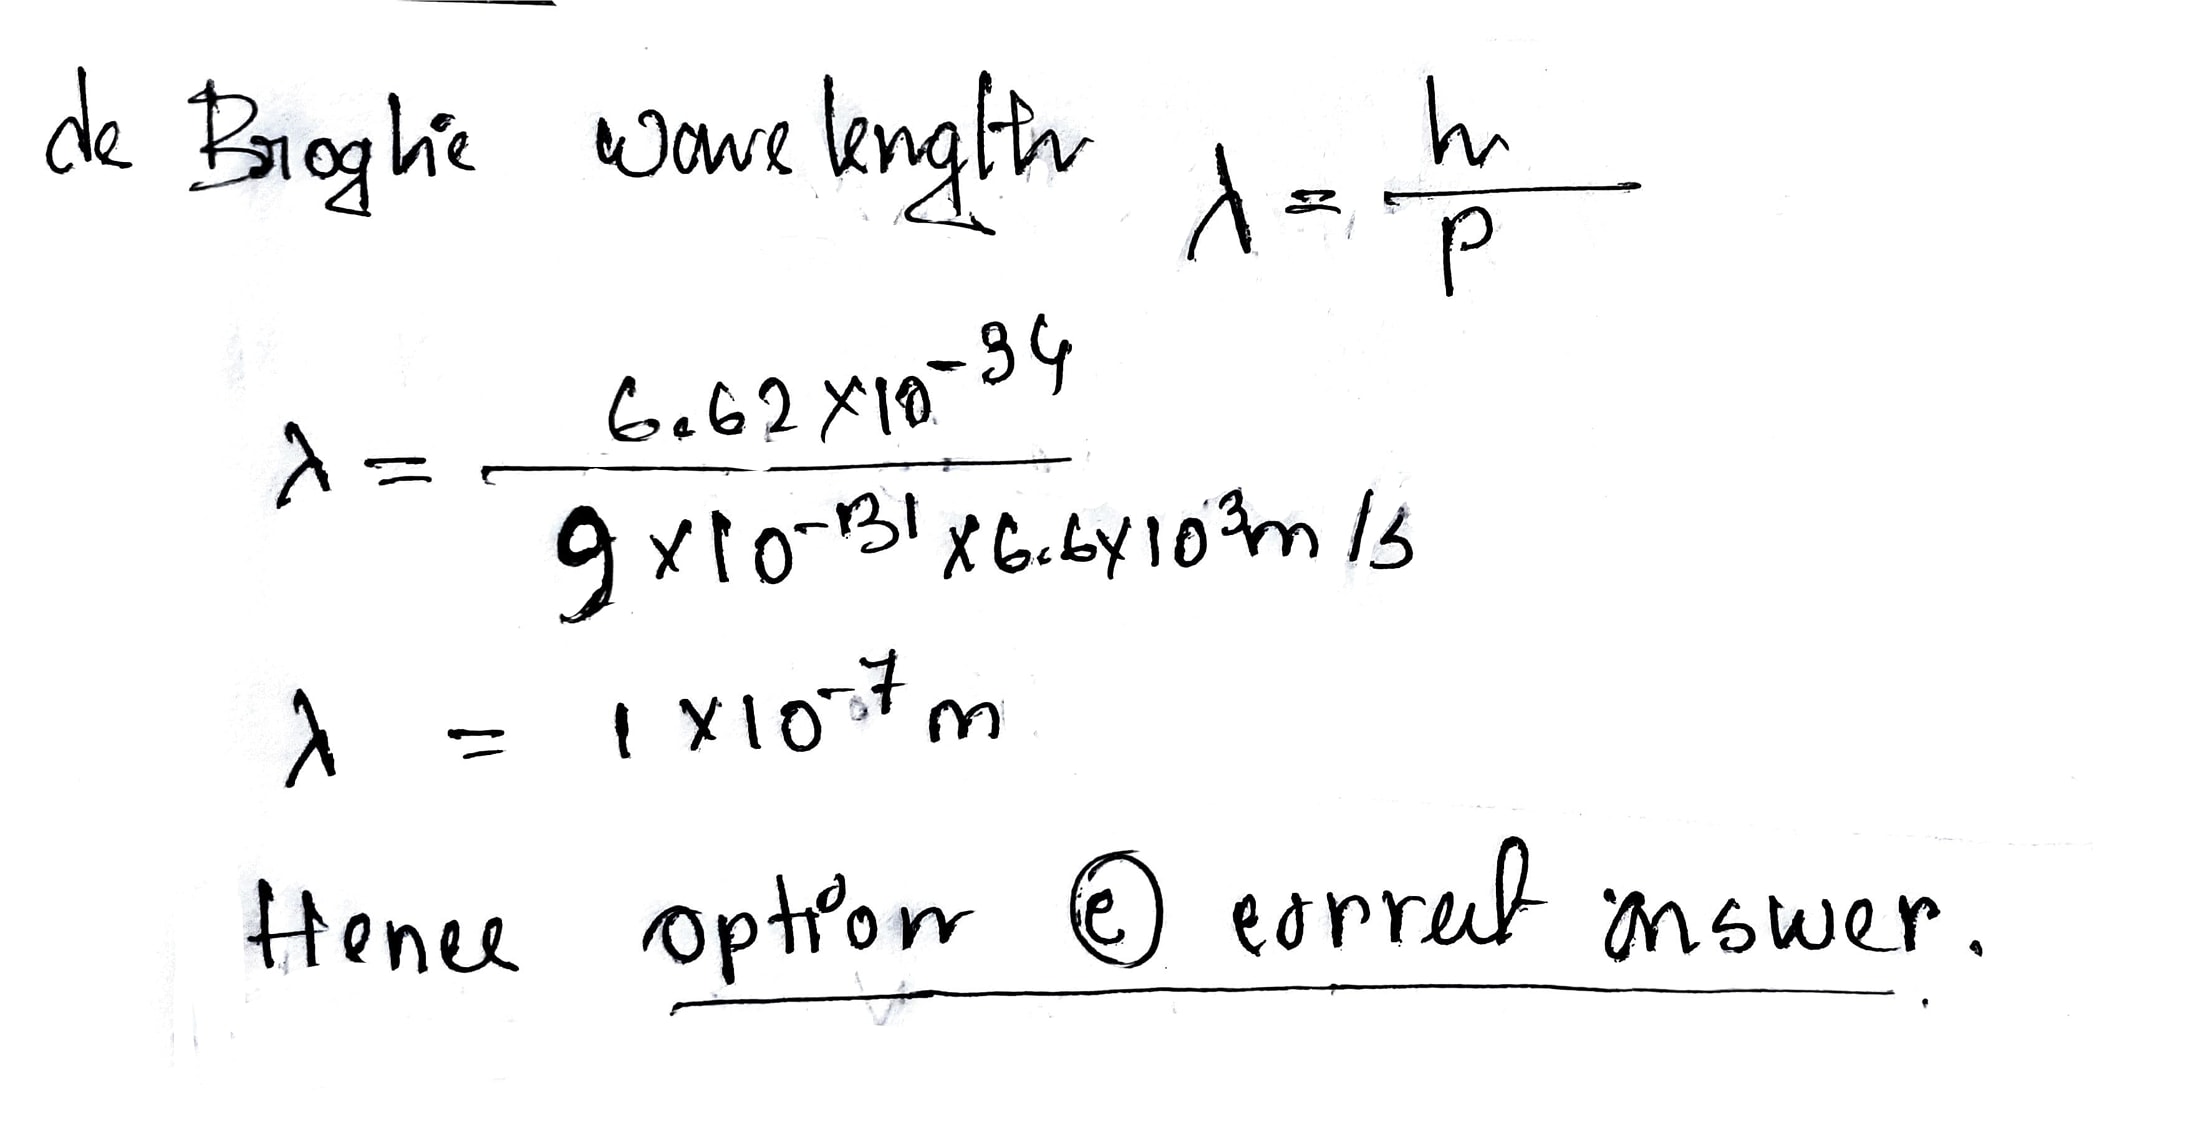 de Broglie wavelength λ = h/p
λ = 6.62 × 10⁻³⁴ / 9 × 10⁻³¹ × 6.6 × 10³ m/s
λ = 1 × 10⁻⁷ m
Hence option ⓔ correct answer.